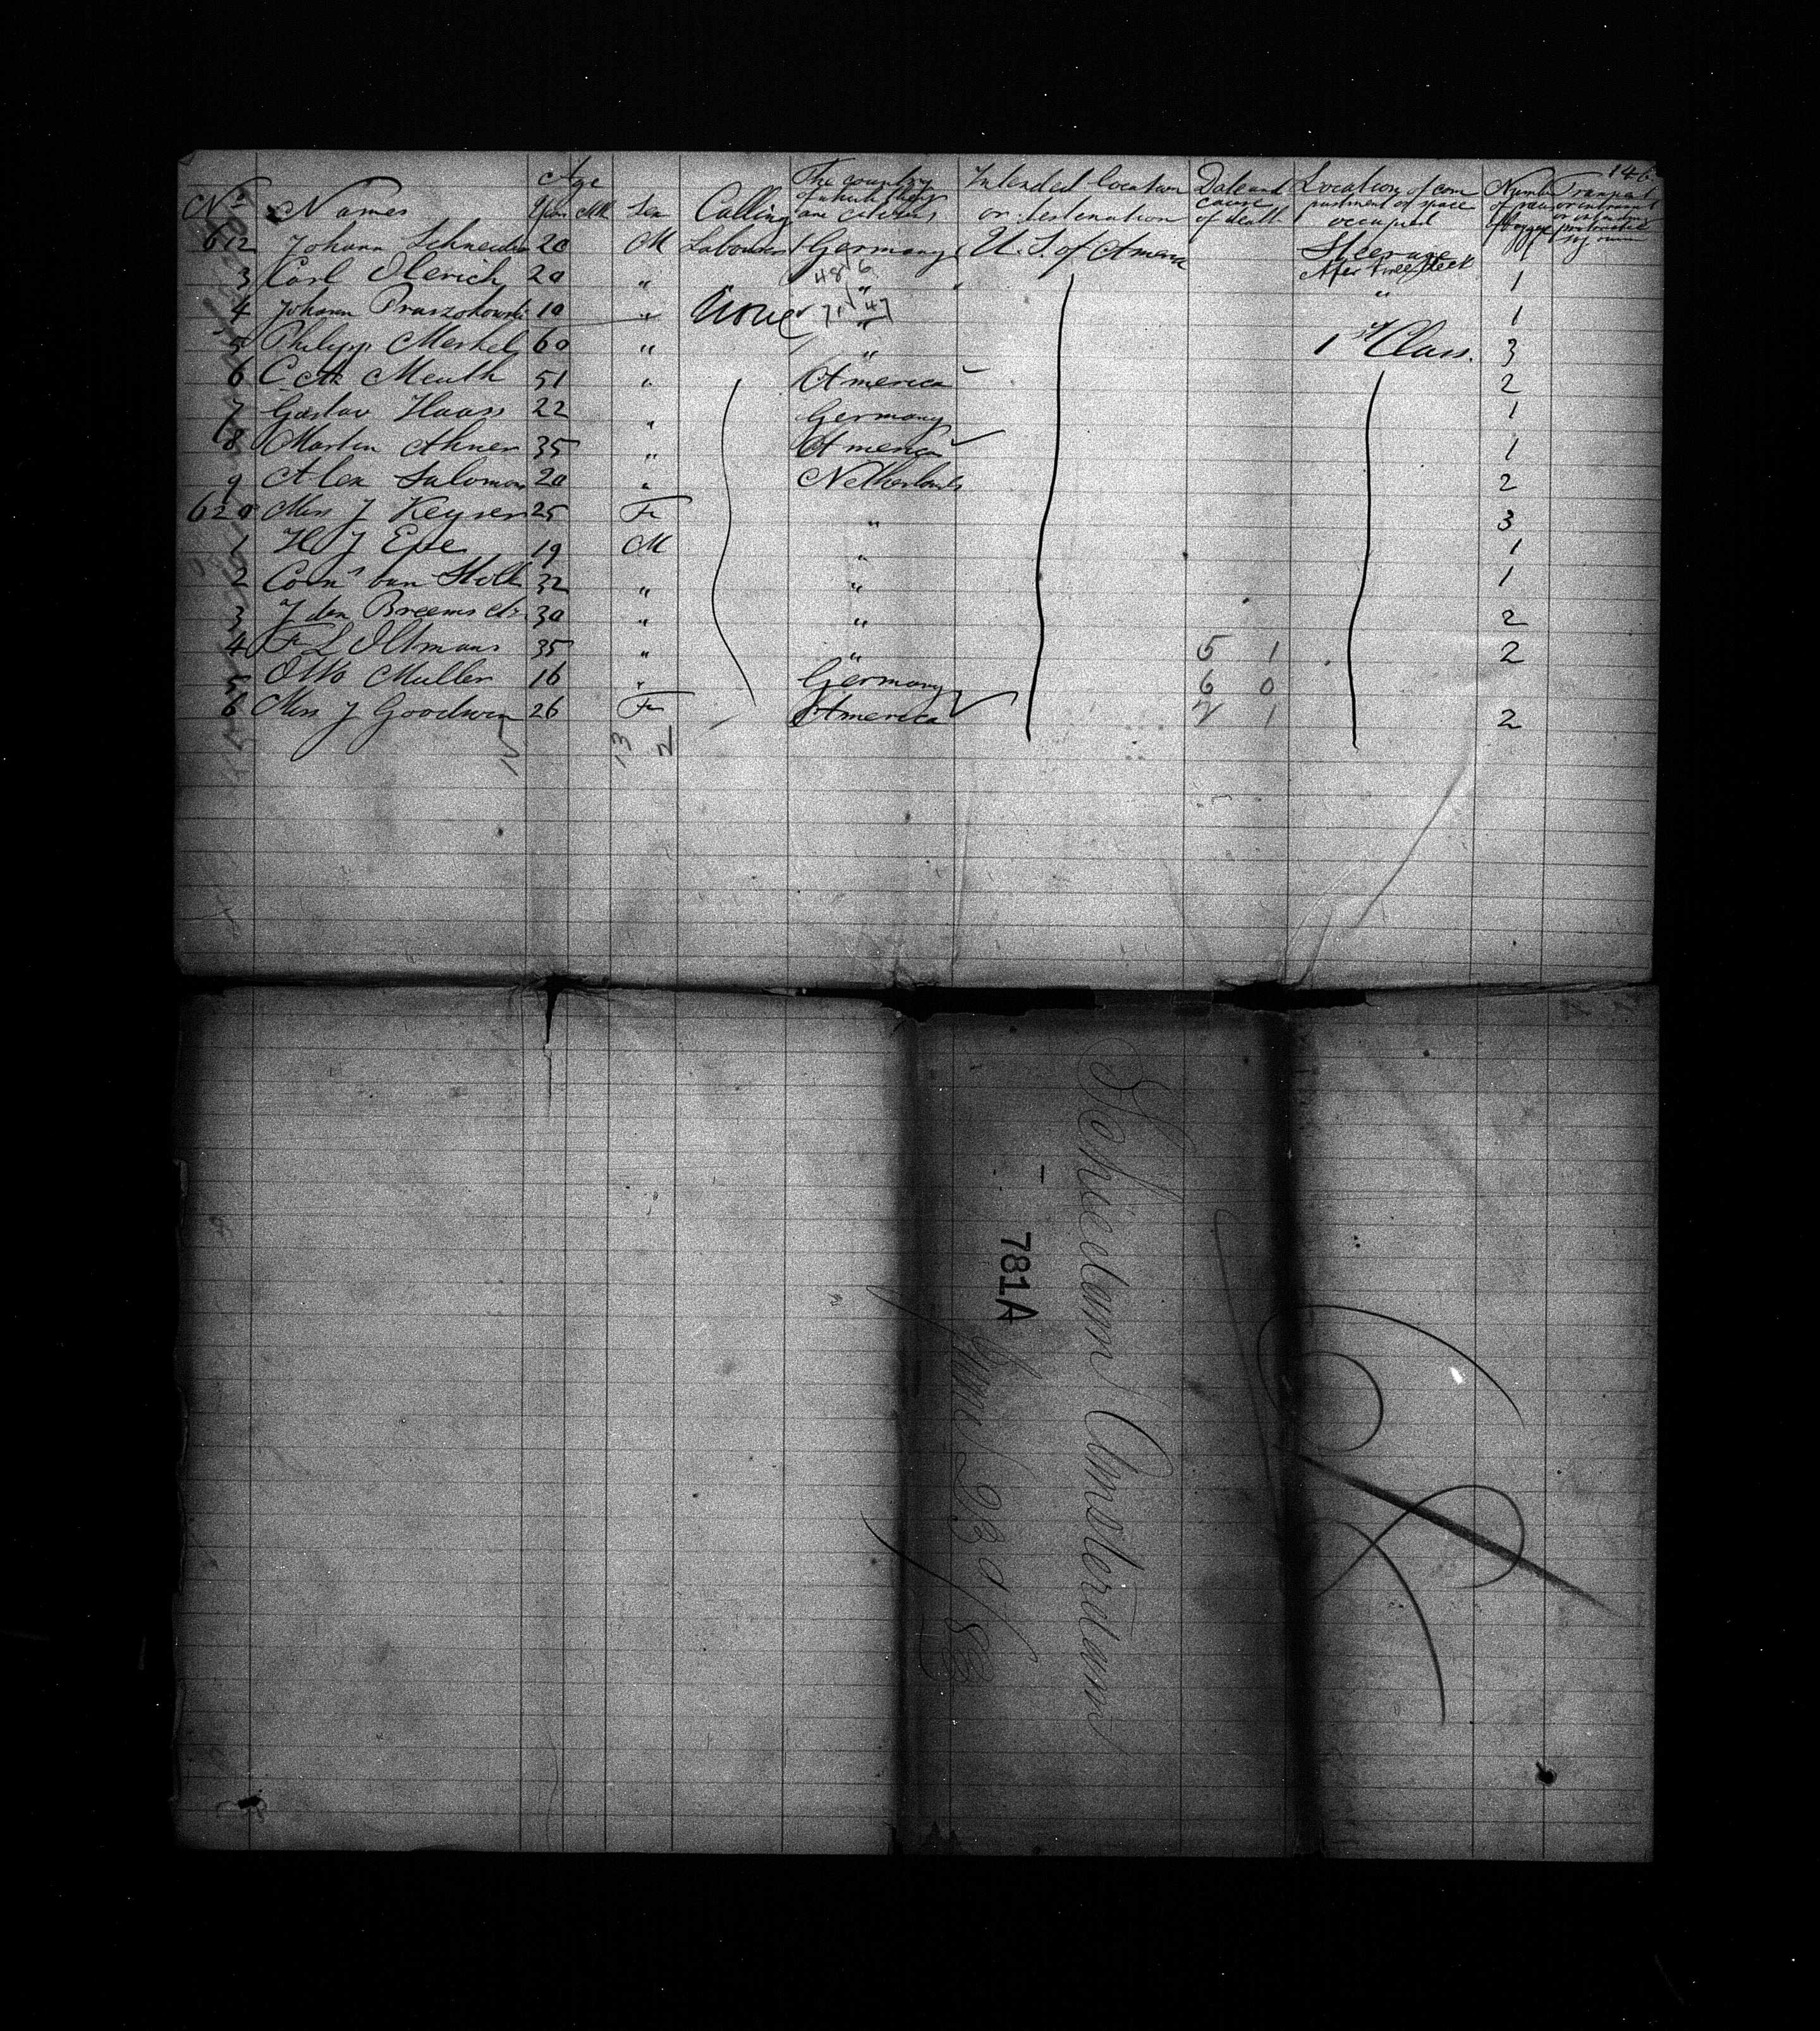 146
No Names Age Years Mth Sex Calling The country of which they are citizens Intended location or destination Date and cause of death Location of compartment or space occupied Number of pieces of baggage
612 Johann Schneider 20 M Labourer Germany U. S. of America Steerage After Tween Deck
3 Carl Olerich 20 " " " 1
4 Johann Praszokowski 10 " None " 1
5 Philipp Merkel 60 " " 1st Class. 3
6 C. M. Meuth 51 " America 2
7 Gustav Haass 22 " Germany 1
8 Martin Ahner 35 " America 1
9 Alex Salomon 20 " Netherlands 2
620 Miss J Keyser 25 F " 3
1 H J Epe 19 M " 1
2 Corns van Holk 32 " " 1
3 J den Breems 30 " " 2
4 F L Oltmans 35 " " 5 1 2
5 Otto Muller 16 " Germany 6 0
6 Miss J Goodwin 26 F America 2 1 2
13 2
Schiedam Amsterdam
781A
June 23d/83